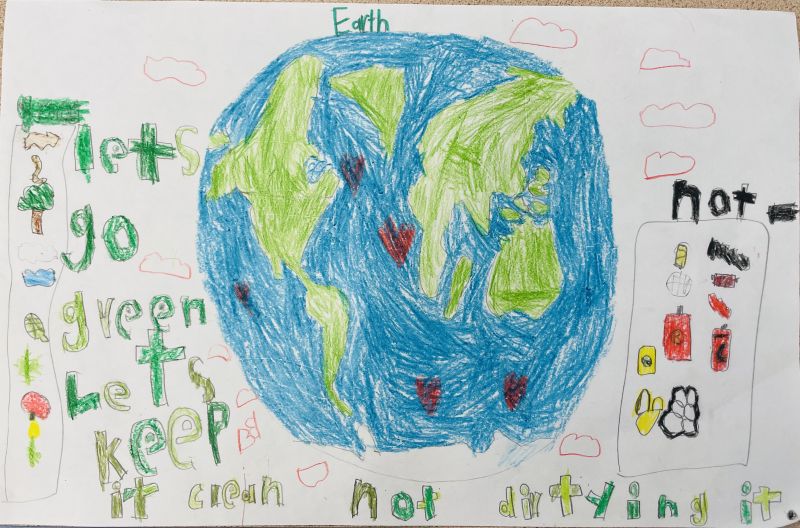 Earth
lets
go
green
Lets
KEEP
it clean not dirtying it
not